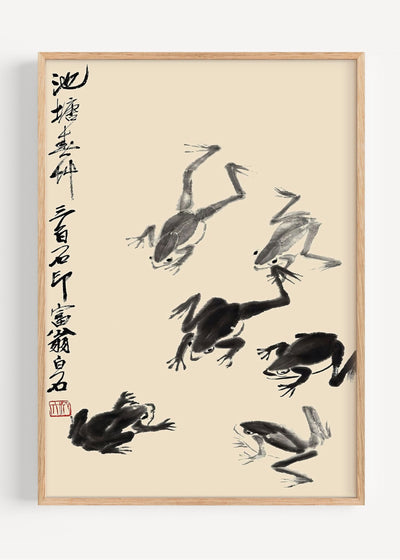 池塘春艸三百石印富翁白石